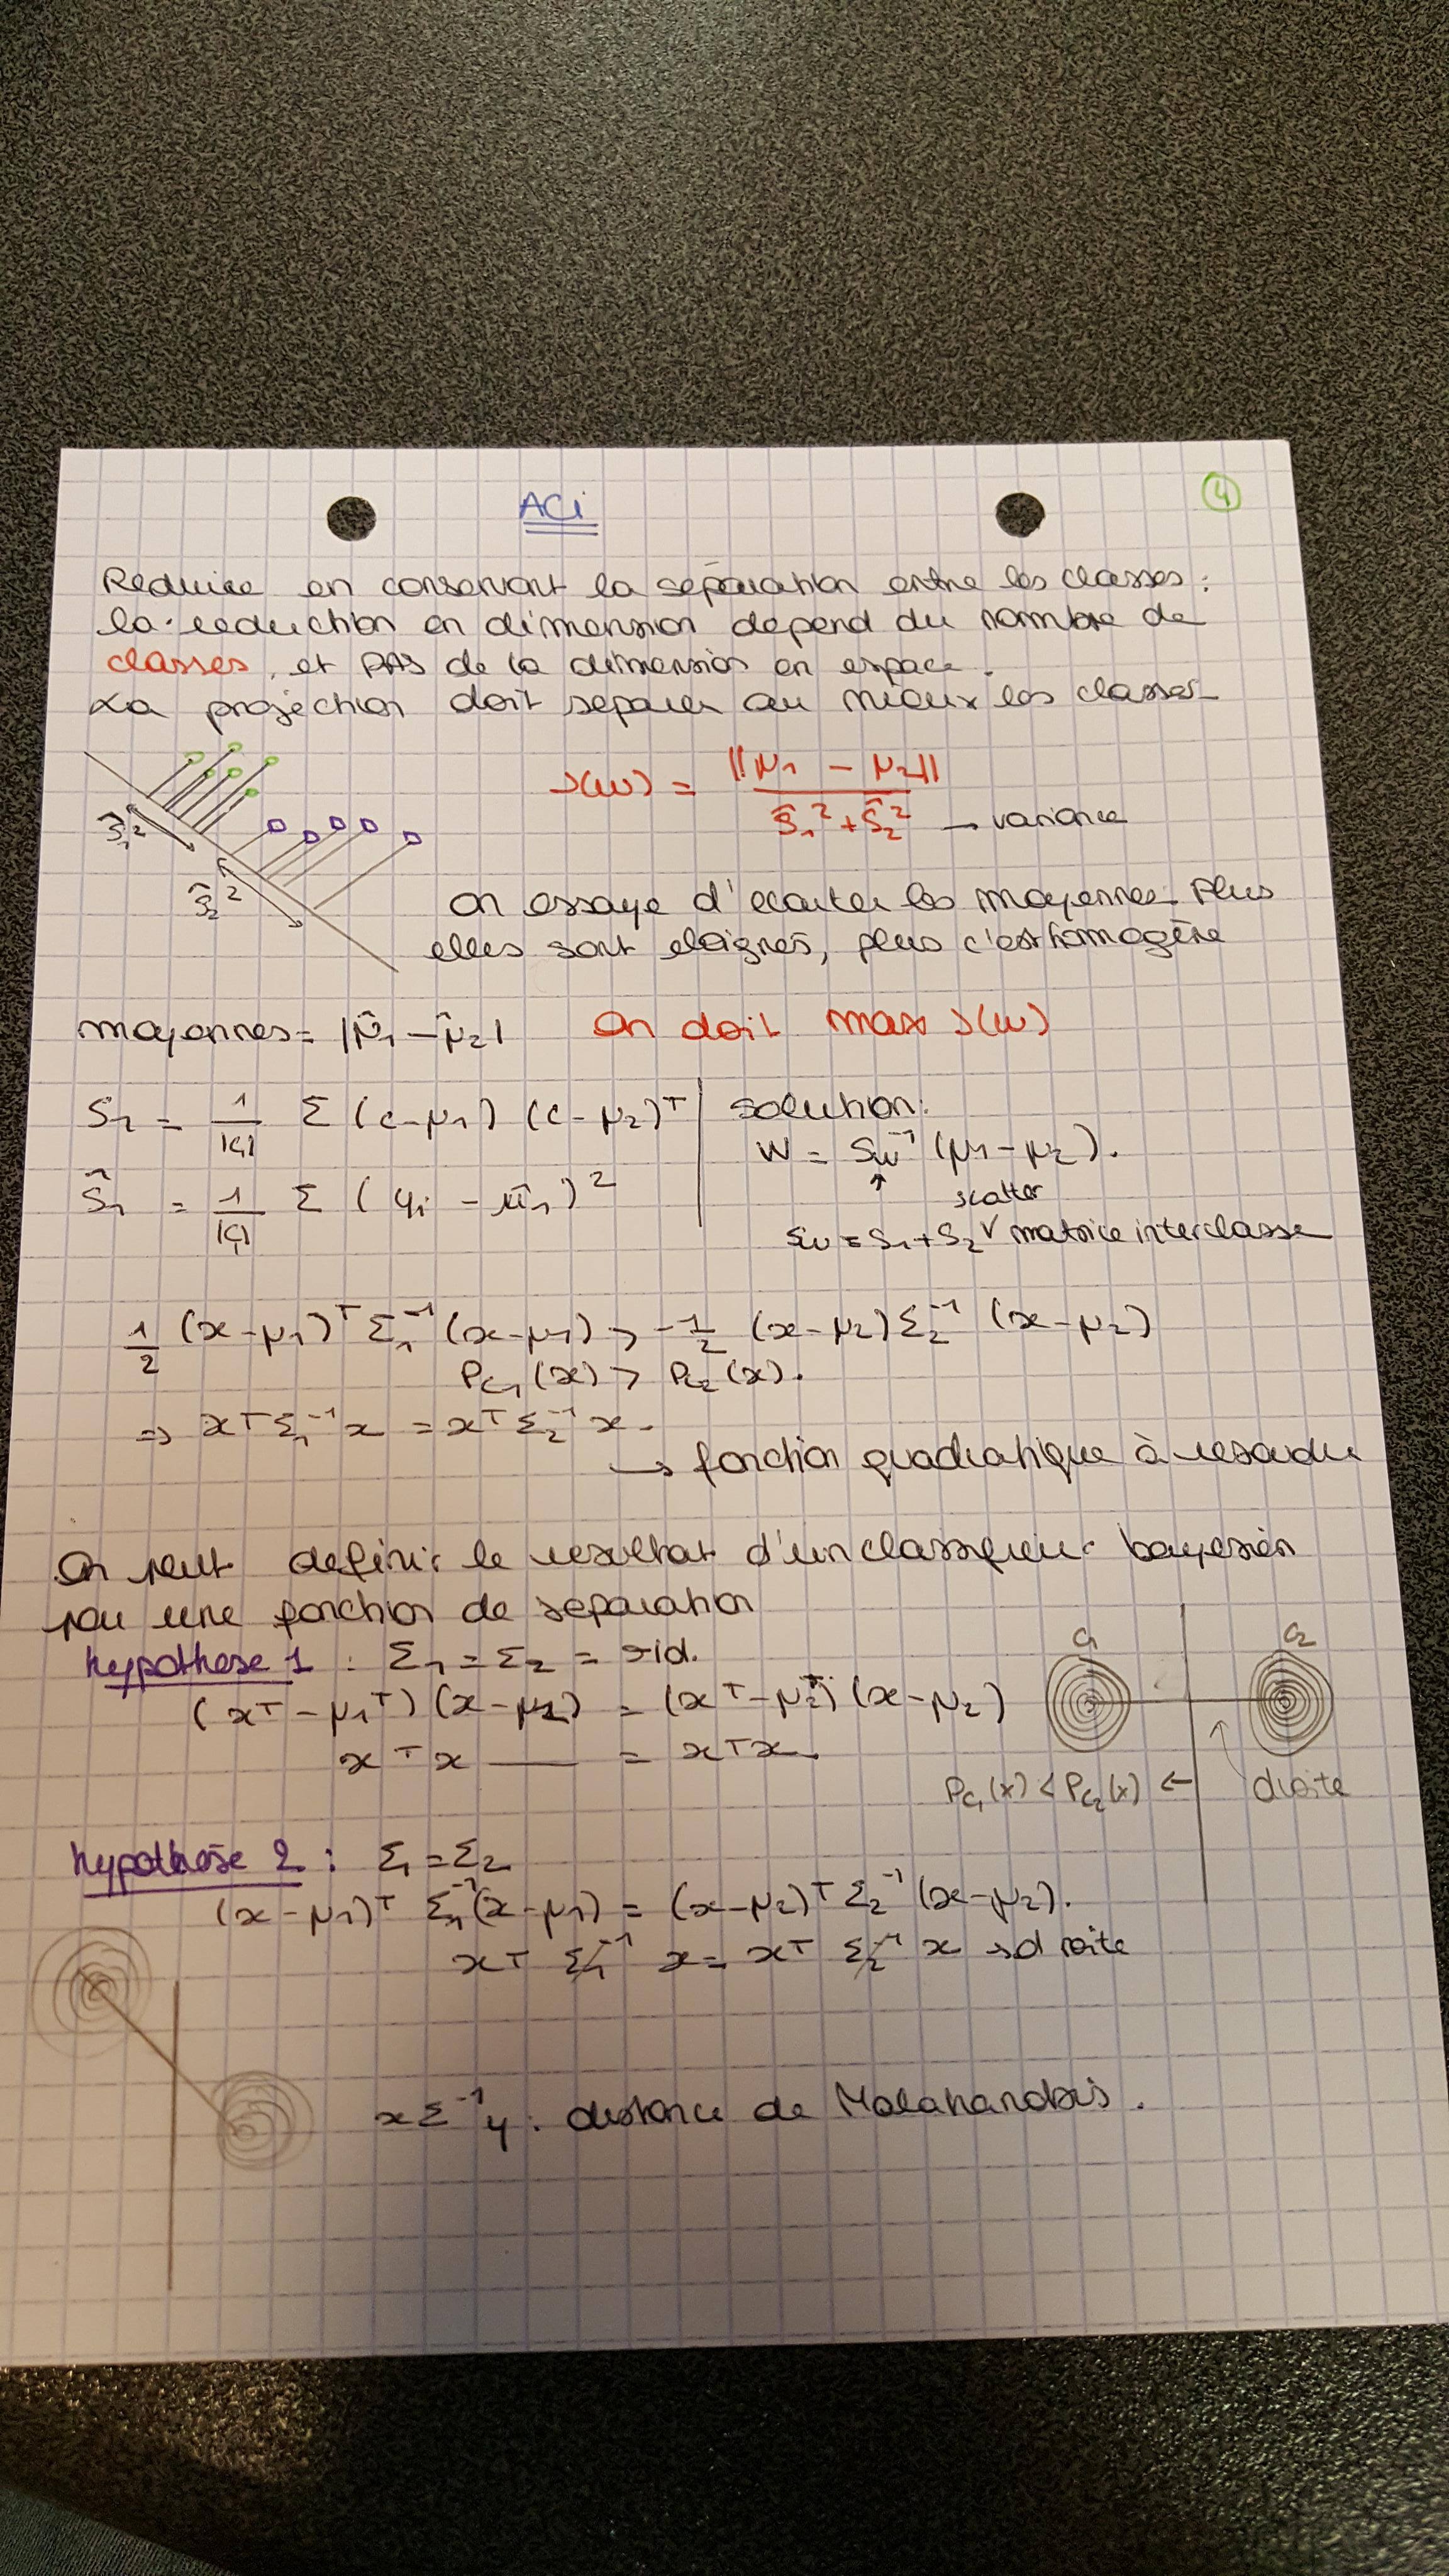 ACi
4
Reduire en conservant la séparation entre les classes :
la reduction en dimension depend du nombre de
classes, et PAS de la dimension en espace.
La projection doit separer au mieux les classes
J(w) = ||μ1 - μ2|| / ŝ1² + ŝ2² → variance
ŝ1²
ŝ2²
on essaye d'ecarter les moyennes. Plus
elles sont eloignés, plus c'est homogène
moyennes = |μ̂1 - μ̂2| On doit max J(w)
S1 = 1/|C1| Σ (c-μ1) (c-μ2)ᵀ
Ŝ1 = 1/|C1| Σ (yi - μ̂1)²
solution:
W = Sw⁻¹ (μ1 - μ2).
↑ scatter
Sw = S1 + S2 matrice interclasse
1/2 (x-μ1)ᵀ Σ1⁻¹ (x-μ1) > -1/2 (x-μ2) Σ2⁻¹ (x-μ2)
PC1(x) > PC2(x).
⇒ xᵀ Σ1⁻¹ x = xᵀ Σ2⁻¹ x.
→ fonction quadratique à resoudre
On peut definir le resultat d'un classifieur bayesien
par une fonction de separation
hypothese 1 : Σ1 = Σ2 = id.
(xᵀ - μ1ᵀ) (x - μ1) = (xᵀ - μ2ᵀ) (x - μ2)
xᵀx — = xᵀx.
C1 C2
PC1(x) < PC2(x) ← droite
hypothèse 2 : Σ1 = Σ2
(x - μ1)ᵀ Σ1⁻¹ (x - μ1) = (x - μ2)ᵀ Σ2⁻¹ (x - μ2).
xᵀ Σ1⁻¹ x = xᵀ Σ2⁻¹ x → droite
x Σ⁻¹ y : distance de Malahanobis.